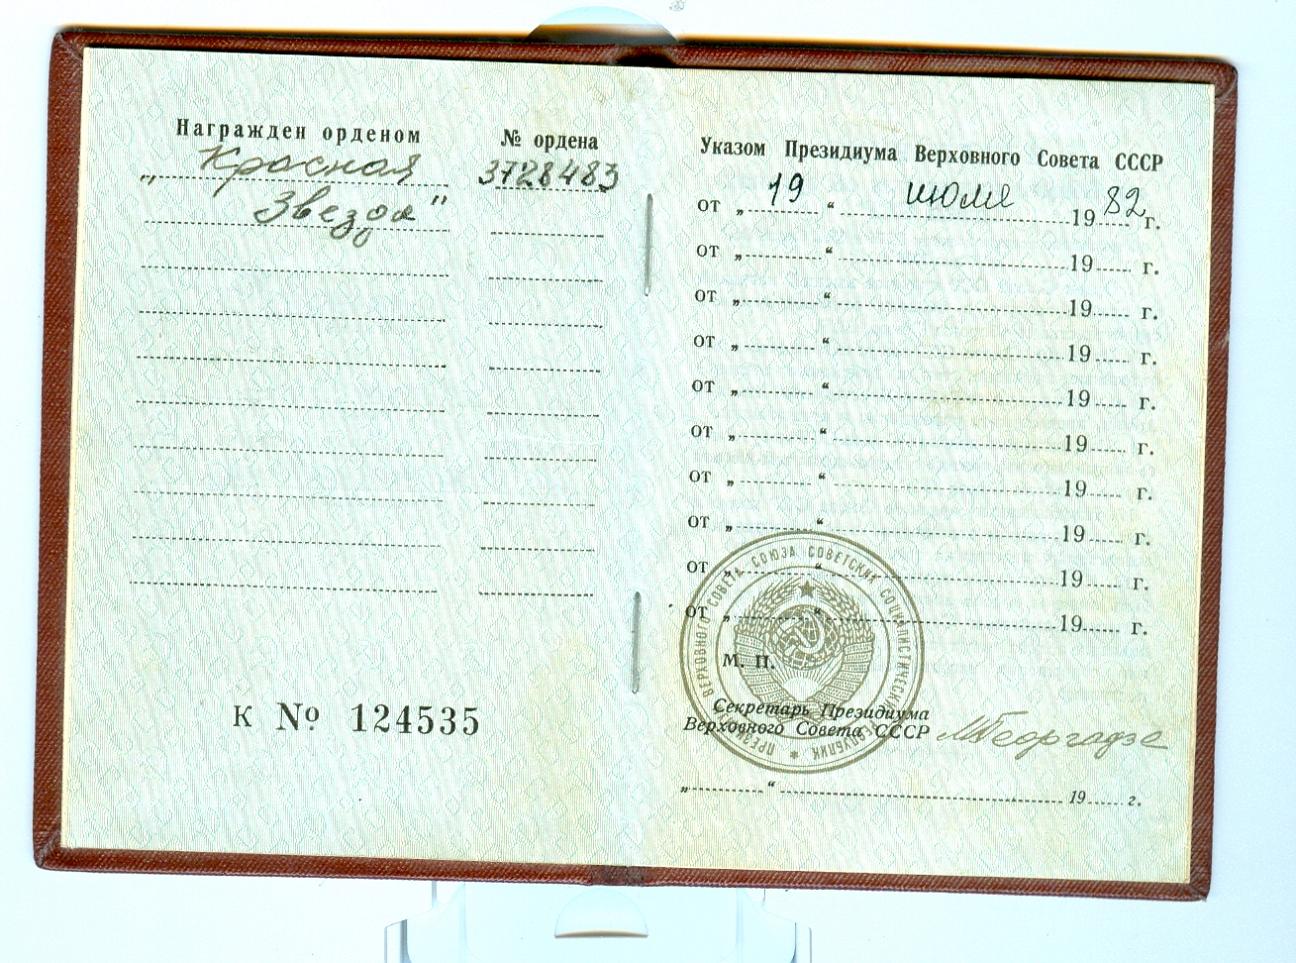 Награжден орденом
№ ордена
„ Красная
Звезда"
3728483
к № 124535
Указом Президиума Верховного Совета СССР
от „ 19 “ июля 1982 г.
от „ “ 19 г.
от „ “ 19 г.
от „ “ 19 г.
от „ “ 19 г.
от „ “ 19 г.
от „ “ 19 г.
от „ “ 19 г.
от „ “ 19 г.
от „ “ 19 г.
ПРЕЗИДИУМ ВЕРХОВНОГО СОВЕТА СОЮЗА СОВЕТСКИХ СОЦИАЛИСТИЧЕСКИХ РЕСПУБЛИК
М. П.
Секретарь Президиума
Верховного Совета СССР МГеоргадзе
„ “ 19 г.